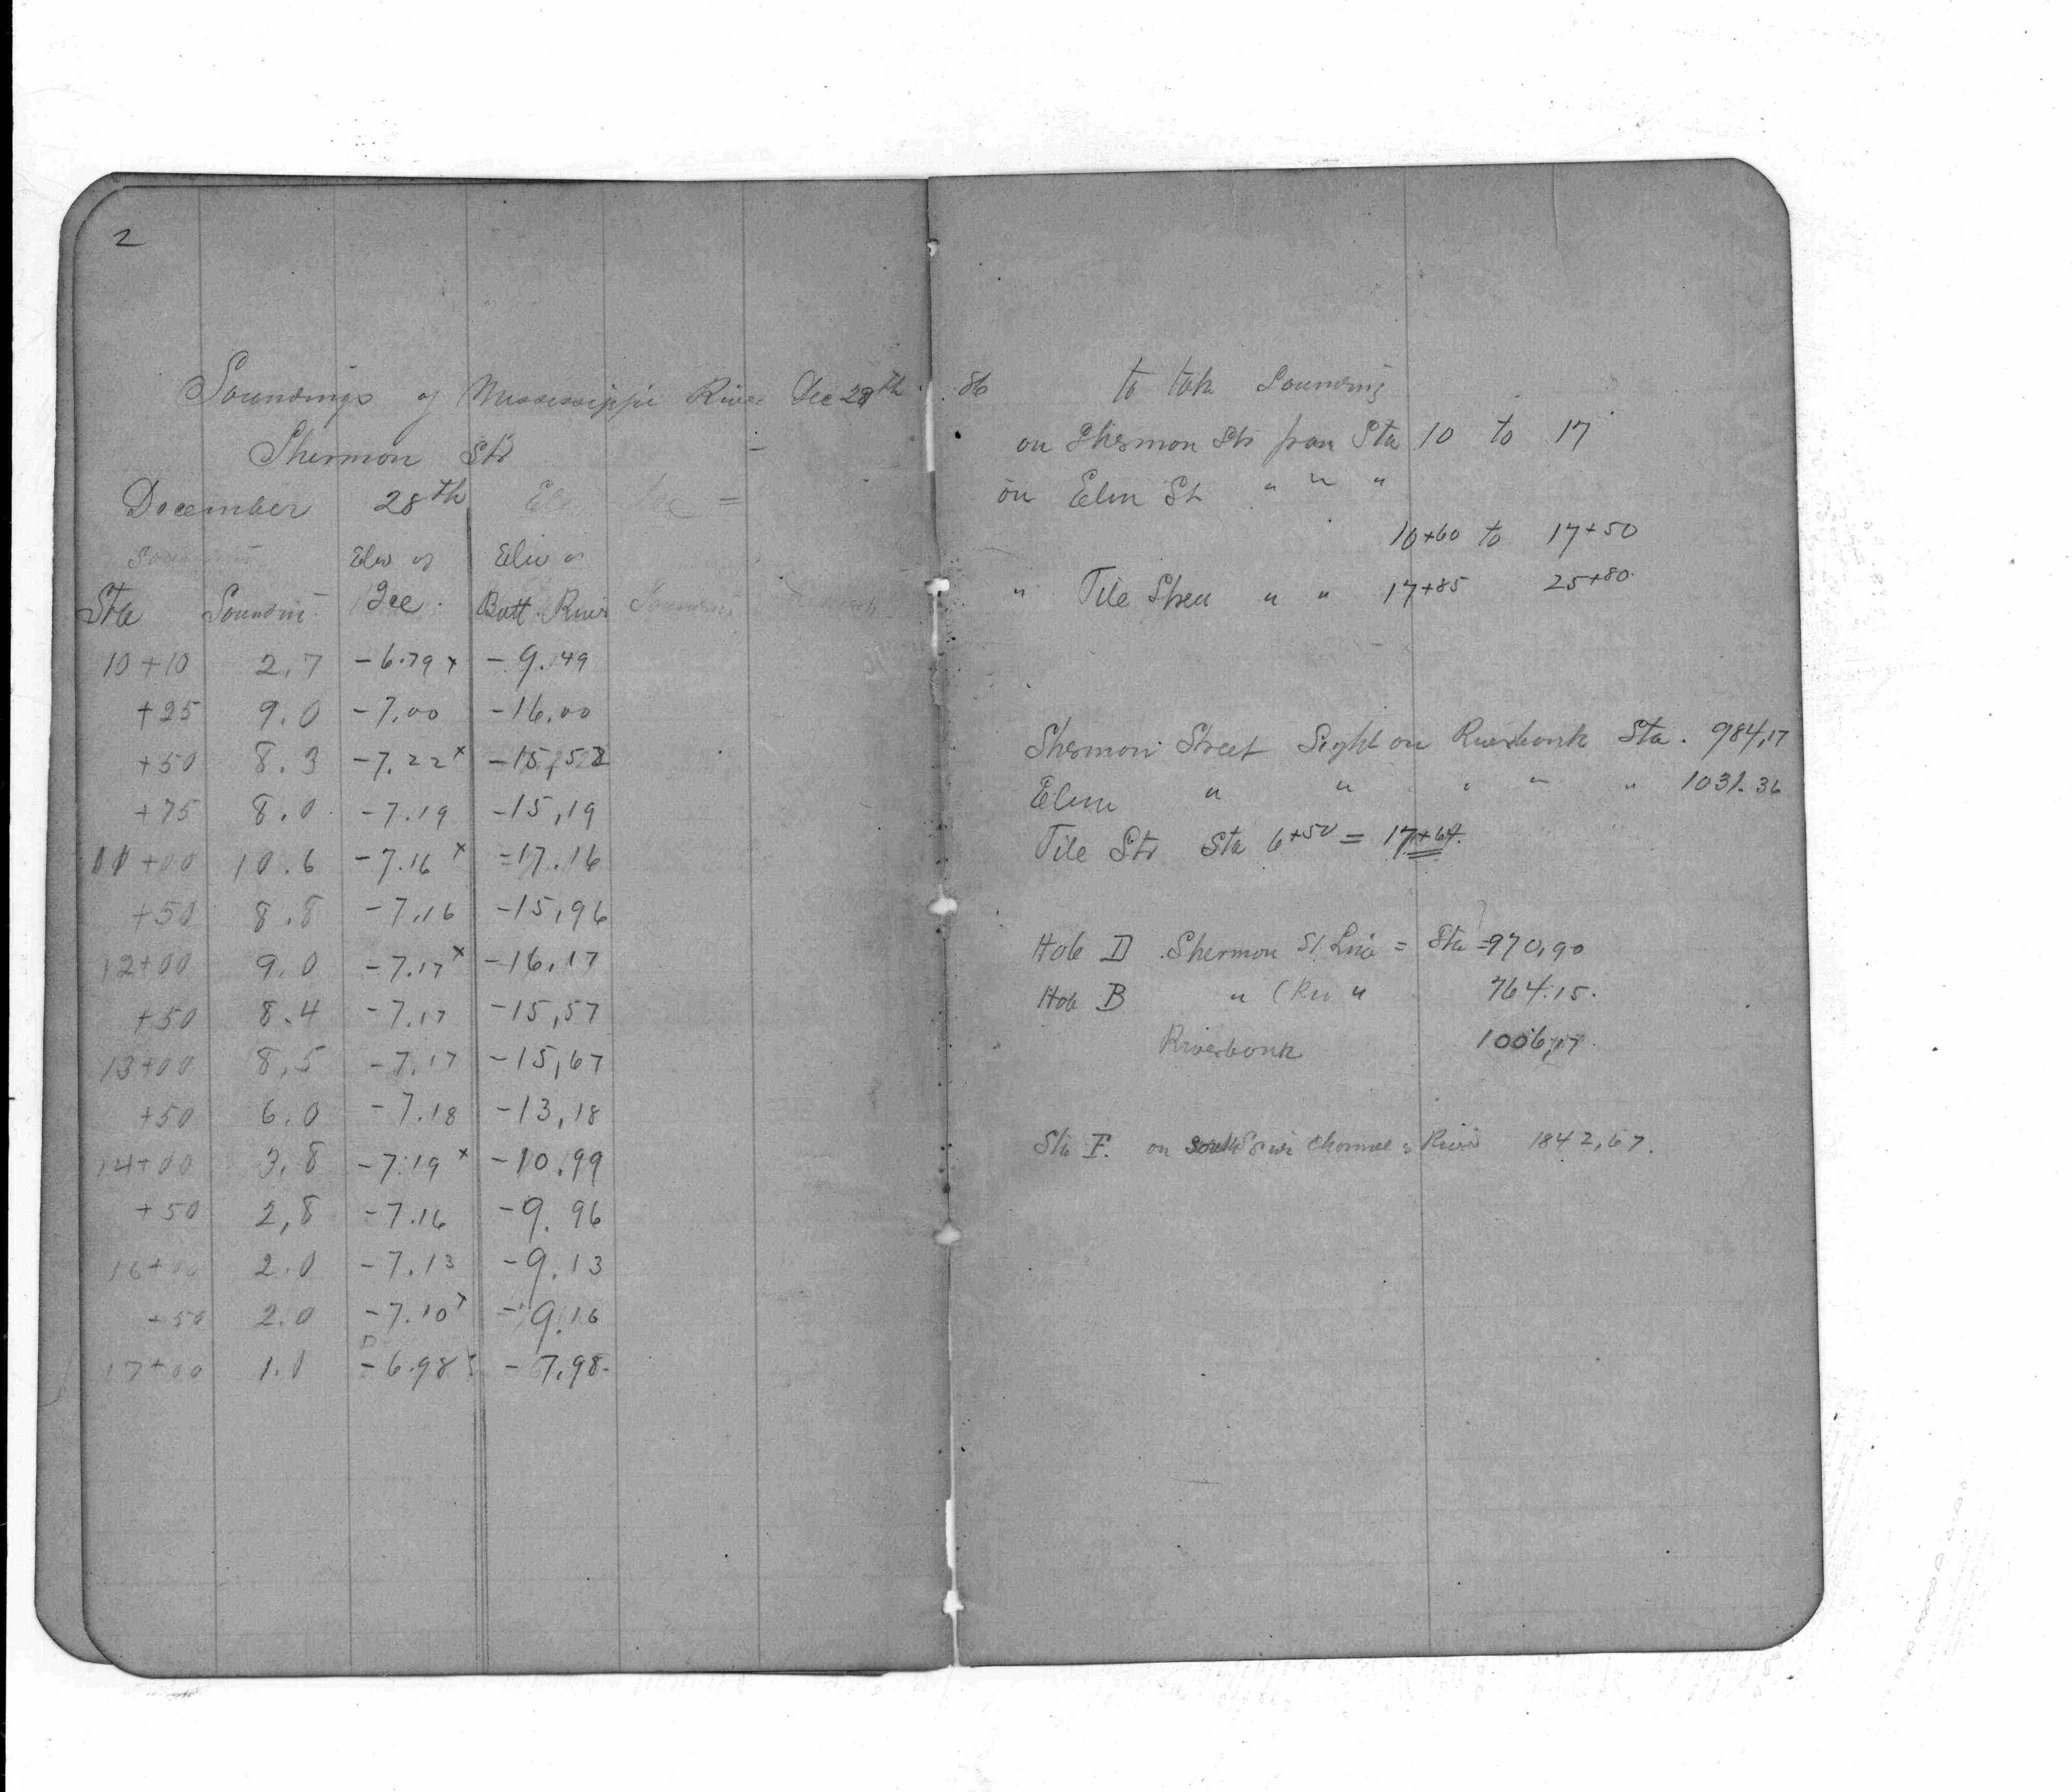 2
Soundings of Mississippi River Dec 28th 86
Shermon Str
December 28th
Elev of Elev of
Sta Sounding Ice. Bott. River
10+10 2.7 -6.79 x -9.49
+25 9.0 -7.00 -16.00
+50 8.3 -7.22 x -15.52
+75 8.0 -7.19 -15,19
11+00 10.6 -7.16 x =17.16
+50 8.8 -7.16 -15,96
12+00 9.0 -7.17 x -16,17
+50 8.4 -7.17 -15,57
13+00 8,5 -7.17 -15,67
+50 6.0 -7.18 -13,18
14+00 3,8 -7.19 x -10.99
+50 2,8 -7.16 -9.96
2.0 -7.13 -9.13
+50 2.0 -7.10 x -9.16
17+00 1.0 -6.98 -7,98.
to take Sounding
on Shermon Str from Sta 10 to 17
on Elm St " " "
10+60 to 17+50
" Tile Street " " 17+85 25+80.
Shermon Street Sight on Riverbonk Sta. 984,17
Elm " " " " " 1031.36
Tile Str Sta 6+50 = 17+64.
Hob D Shermon St. Line = Sta = 970,90
Hob B " " 764.15.
Riverbonk 1006,17.
Sta F. on South Channel River 1842,67.